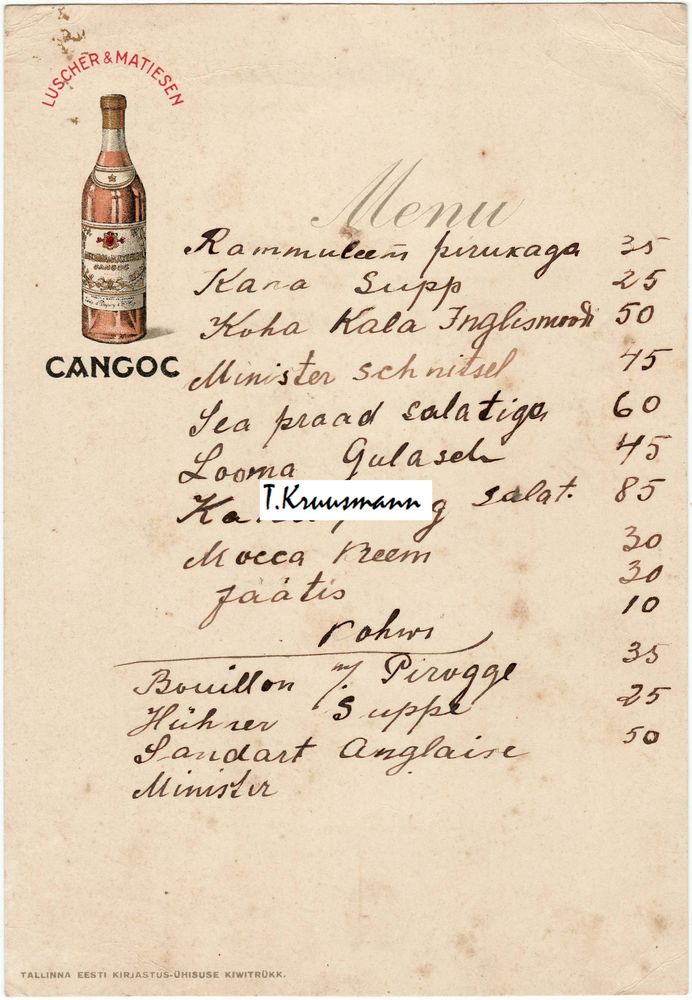 LUSCHER & MATIESEN
CANGOC
Menu
Rammuleem pirukaga 35
Kana Supp 25
Koha Kala Inglismoodi 50
Minister schnitsel 45
Sea praad salatiga 60
Looma Gulasch 45
T.Kruusmann
salat. 85
Mocca Kreem 30
Jäätis 30
Kohwi 10
Bouillon m/ Pirogge 35
Hühner Suppe 25
Sandart Anglaise 50
Minister
TALLINNA EESTI KIRJASTUS-ÜHISUSE KIWITRÜKK.